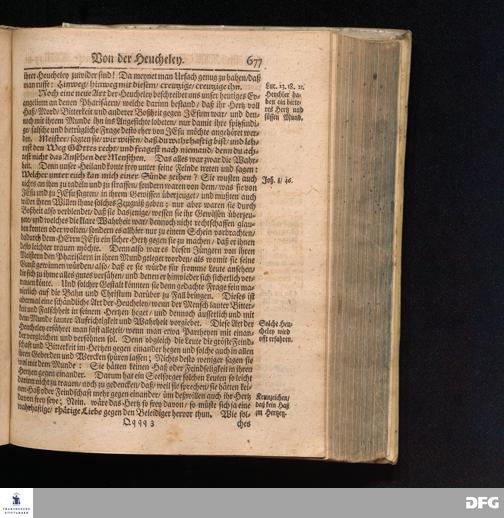 Von der Heucheley. 677
ihrer Heucheley zuwider sind! Da meynet man Ursach genug zu haben/ daß
man ruffe: Hinweg/ hinweg mit diesem/ creutzige/ creutzige ihn.
Noch eine neue Art der Heucheley beschreibet uns unser heutiges Ev-
angelium an denen Pharisäern/ welche darinn bestand/ daß ihr Hertz voll
Haß/ Mord/ Bitterkeit und anderer Boßheit gegen JEsum war/ und den-
noch mit ihrem Munde ihn ins Angesichte lobeten/ nur damit ihre spitzfindi-
ge/ falsche und betrügliche Frage desto eher von JEsu möchte angehöret wer-
den. Meister/ sagten sie/ wir wissen/ daß du warhafftig bist/ und leh-
rest den Weg GOttes recht/ und fragest nach niemand/ denn du ach-
test nicht das Ansehen der Menschen. Das alles war zwar die Wahr-
heit. Denn unser Heiland konte frey unter seine Feinde treten und sagen:
Welcher unter euch kan mich einer Sünde zeihen? Sie wusten auch
nichts an ihm zu tadeln und zu straffen/ sondern waren von dem/ was sie von
JEsu und zu JEsu sagten/ in ihrem Gewissen überzeuget/ und musten auch
wider ihren Willen ihme solches Zeugniß geben; nur aber waren sie durch
Boßheit also verblendet/ daß sie dasjenige/ wessen sie ihr Gewissen überzeu-
gete/ und welches die klare Wahrheit war/ dennoch nicht rechtschaffen glau-
ben konten oder wolten/ sondern es allhier nur zu einem Schein vorbrachten/
dadurch dem HErrn JEsu ein sicher Hertz gegen sie zu machen/ daß er ihnen
desto leichter trauen möchte. Denn also war es diesen Jüngern von ihren
Meistern den Pharisäern in ihren Mund geleget worden/ als womit sie seine
Gunst gewinnen würden/ also/ daß er sie würde für fromme Leute ansehen/
sich zu ihnen alles gutes versähen/ und denen er hinwieder sich sicherlich ver-
trauen könte. Und solcher Gestalt könten sie denn gedachte Frage sein ma-
nierlich auf die Bahn und Christum darüber zu Fall bringen. Dieses ist
abermal eine schändliche Art der Heucheley/ wenn der Mensch lauter Bitter-
keit und Falschheit in seinem Hertzen heget/ und dennoch äusserlich und mit
dem Munde lauter Aufrichtigkeit und Wahrheit vorgiebet. Diese Art der
Heucheley erfähret man fast allezeit/ wenn man etwa Partheyen mit einan-
der vergleichen und versöhnen soll. Denn obgleich die Leute die gröste Feind-
schafft und Bitterkeit im Hertzen gegen einander hegen und solche auch in allen
ihren Geberden und Wercken spüren lassen; Nichts desto weniger sagen sie
wol mit dem Munde: Sie hätten keinen Haß oder Feindseligkeit in ihren
Hertzen gegen einander. Darum hat ein Seelsorger solchen Leuten so leicht
darinn nicht zu trauen/ noch zu gedencken/ daß/ weil sie sprechen/ sie hätten kei-
nen Haß oder Feindschafft mehr gegen einander/ um deßwillen auch ihr Hertz
davon frey seye; Nein. wäre das Hertz so frey davon/ so müste sich ja eine
wahrhafftige/ thätige Liebe gegen den Beleidiger hervor thun. Wie sol-
Qqqq 3 ches
Luc. 23. 18. 21.
Heuchler ha-
ben ein bitte-
res Hertz und
süssen Mund.
Joh. 8/ 46.
Solche Heu-
cheley wird
offt erfahren.
Kennzeichen/
daß kein Haß
im Hertzen.
FRANCKESCHE
STIFTUNGEN
DFG